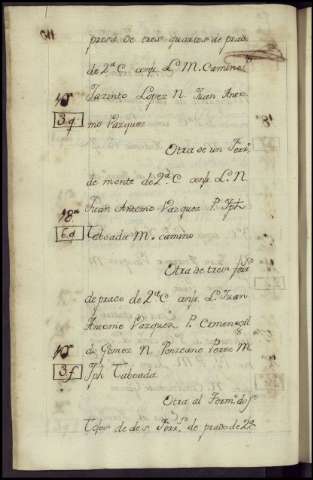 pieza de tres quartos de prado
de 2ª C confª Lª M. Camino
Jazinto Lopez N. Juan Anto
nio Vazquez
3.q
Otra de un Ferrº
de monte de 2ª C confª Lª N.
Juan Antonio Vazquez P. Jph
Taboada M. camino
6.d
Otra de tres ferrs
de prado de 2ª C confª Lª Juan
Antonio Vazquez P. Ermenegil
do Gomez N. Ponciano Perez M.
Jph Taboada
3.f
Otra al Form. do
de dos Ferrs de prado de 2ª